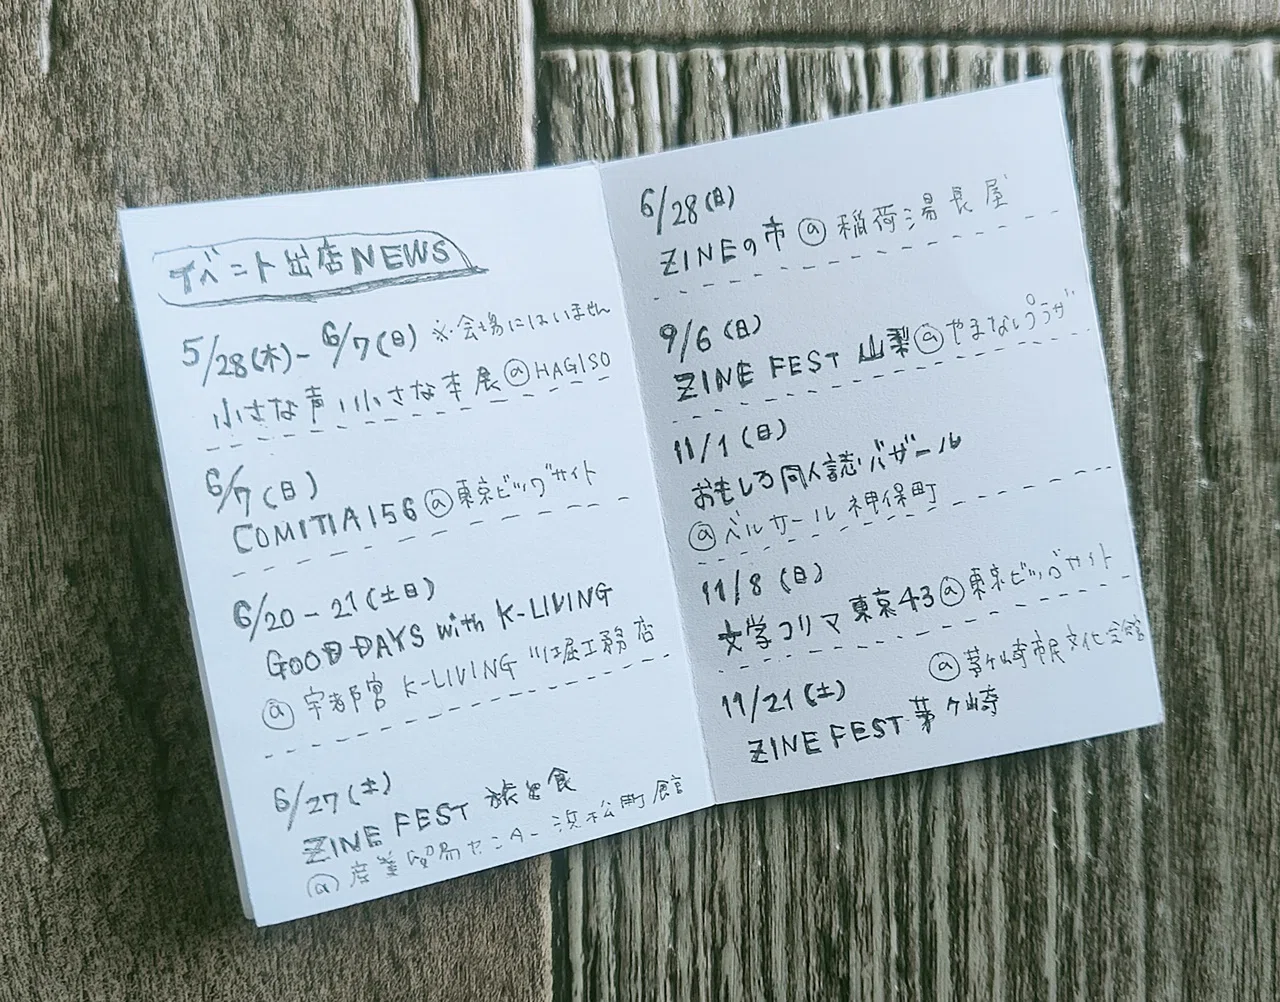 イベント出店NEWS
5/28(木)- 6/7(日) ※会場にはいません
小さな声、小さな本展@HAGISO
6/7(日)
COMITIA156@東京ビッグサイト
6/20-21(土日)
GOOD DAYS with K-LIVING
@宇都宮 K-LIVING 川堀工務店
6/27(土)
ZINE FEST 旅と食
@産業貿易センター浜松町館
6/28(日)
ZINEの市@稲荷湯長屋
9/6(日)
ZINE FEST 山梨@やまなしプラザ
11/1(日)
おもしろ同人誌バザール
@ベルサール神保町
11/8(日)
文学フリマ東京43@東京ビッグサイト
11/21(土) @茅ヶ崎市民文化会館
ZINE FEST 茅ヶ崎